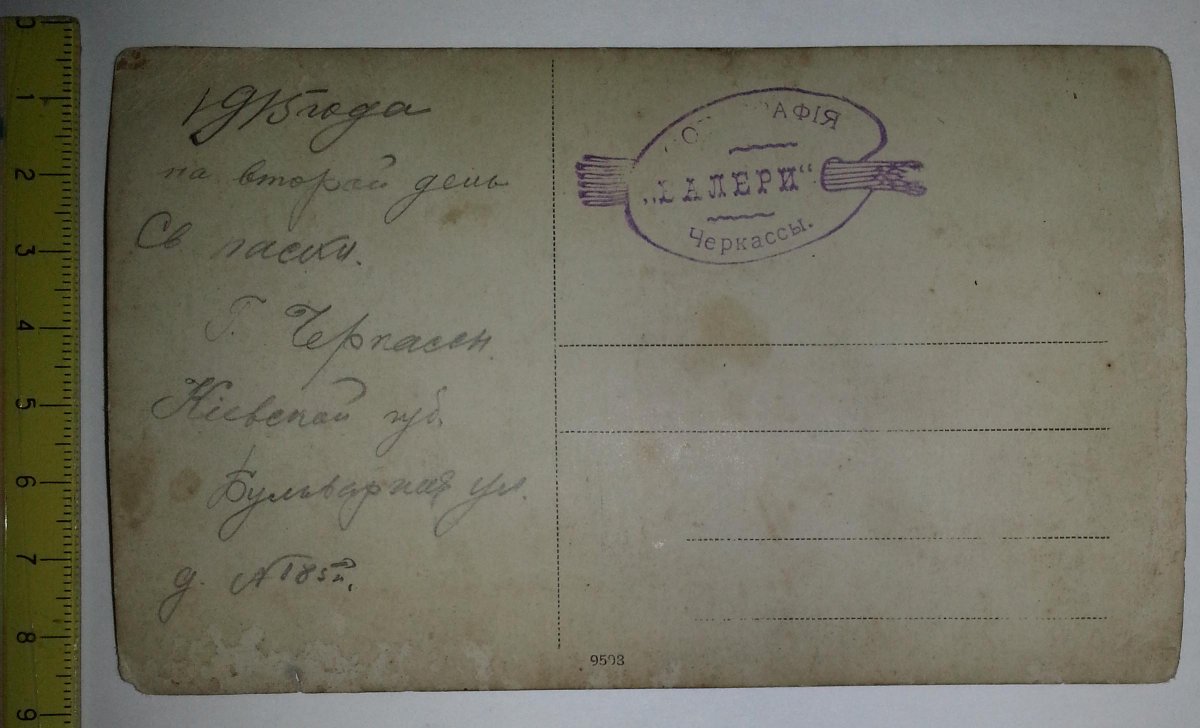 1915 года
на второй день
Св паски.
Г. Черкассы
Кіевской губ.
Бульварная ул.
д. № 85й.
ФОТОГРАФІЯ
„ВАЛЕРИ“
Черкассы.
9593
0
1
2
3
4
5
6
7
8
9